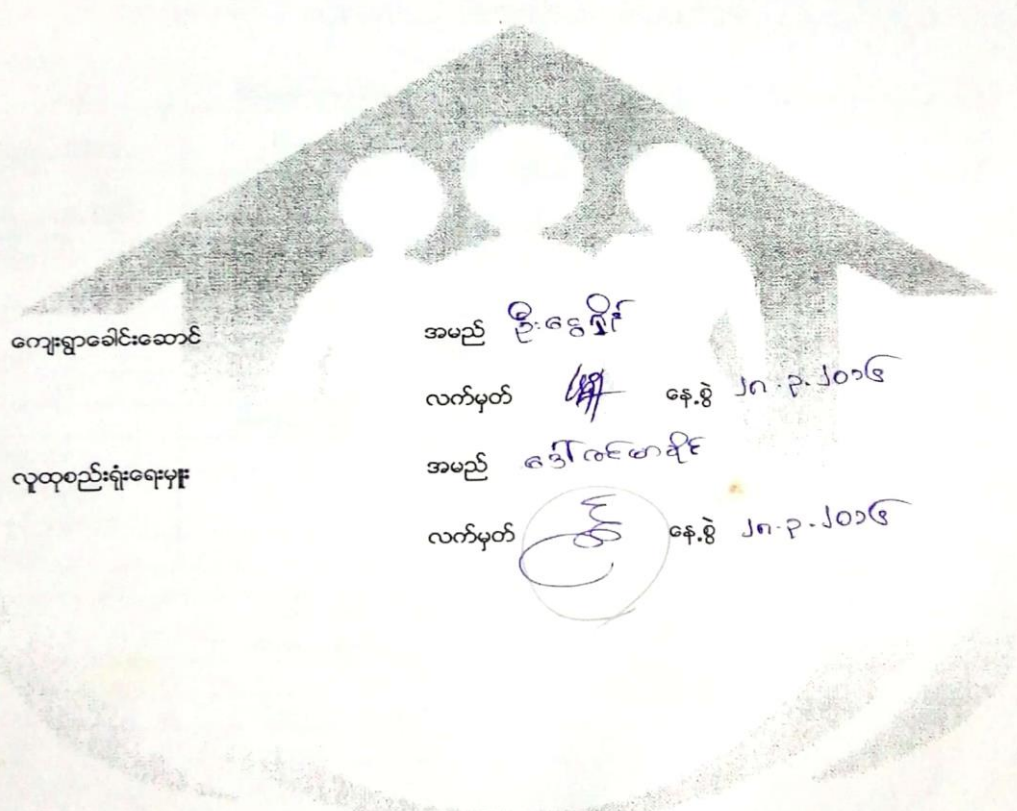 ကျေးရွာခေါင်းဆောင် အမည် ဦးငွေရှိုင်
လက်မှတ် နေ့စွဲ ၂၈.၃.၂၀၁၆
လူထုစည်းရုံးရေးမှူး အမည် ဒေါ်ခင်မာခိုင်
လက်မှတ် နေ့စွဲ ၂၈.၃.၂၀၁၆